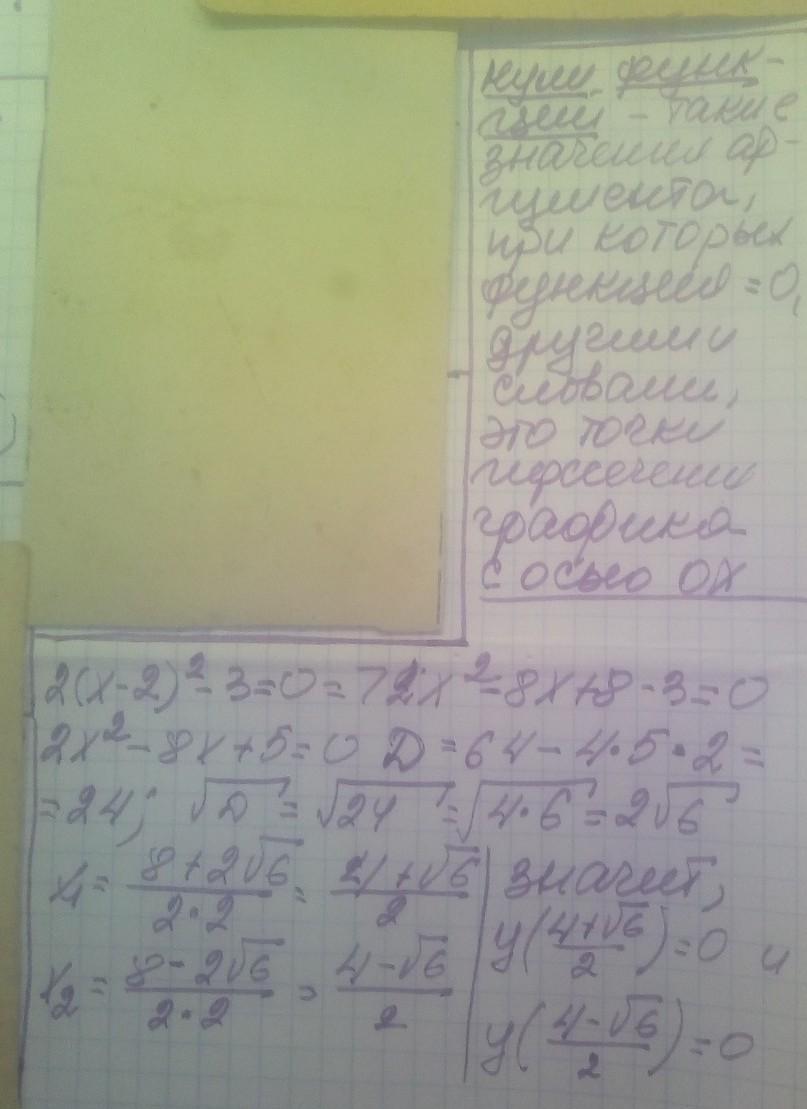 нули функ-
ции - такие
значения ар-
гумента,
при которых
функция = 0,
другими
словами,
это точки
пересечения
графика
с осью OX
2(x-2)² - 3 = 0 => 2x² - 8x + 8 - 3 = 0
2x² - 8x + 5 = 0 D = 64 - 4·5·2 =
= 24; √D = √24 = √4·6 = 2√6
x₁ = (8 + 2√6)/(2·2) = (4 + √6)/2
x₂ = (8 - 2√6)/(2·2) = (4 - √6)/2
значит,
y((4+√6)/2) = 0 и
y((4-√6)/2) = 0